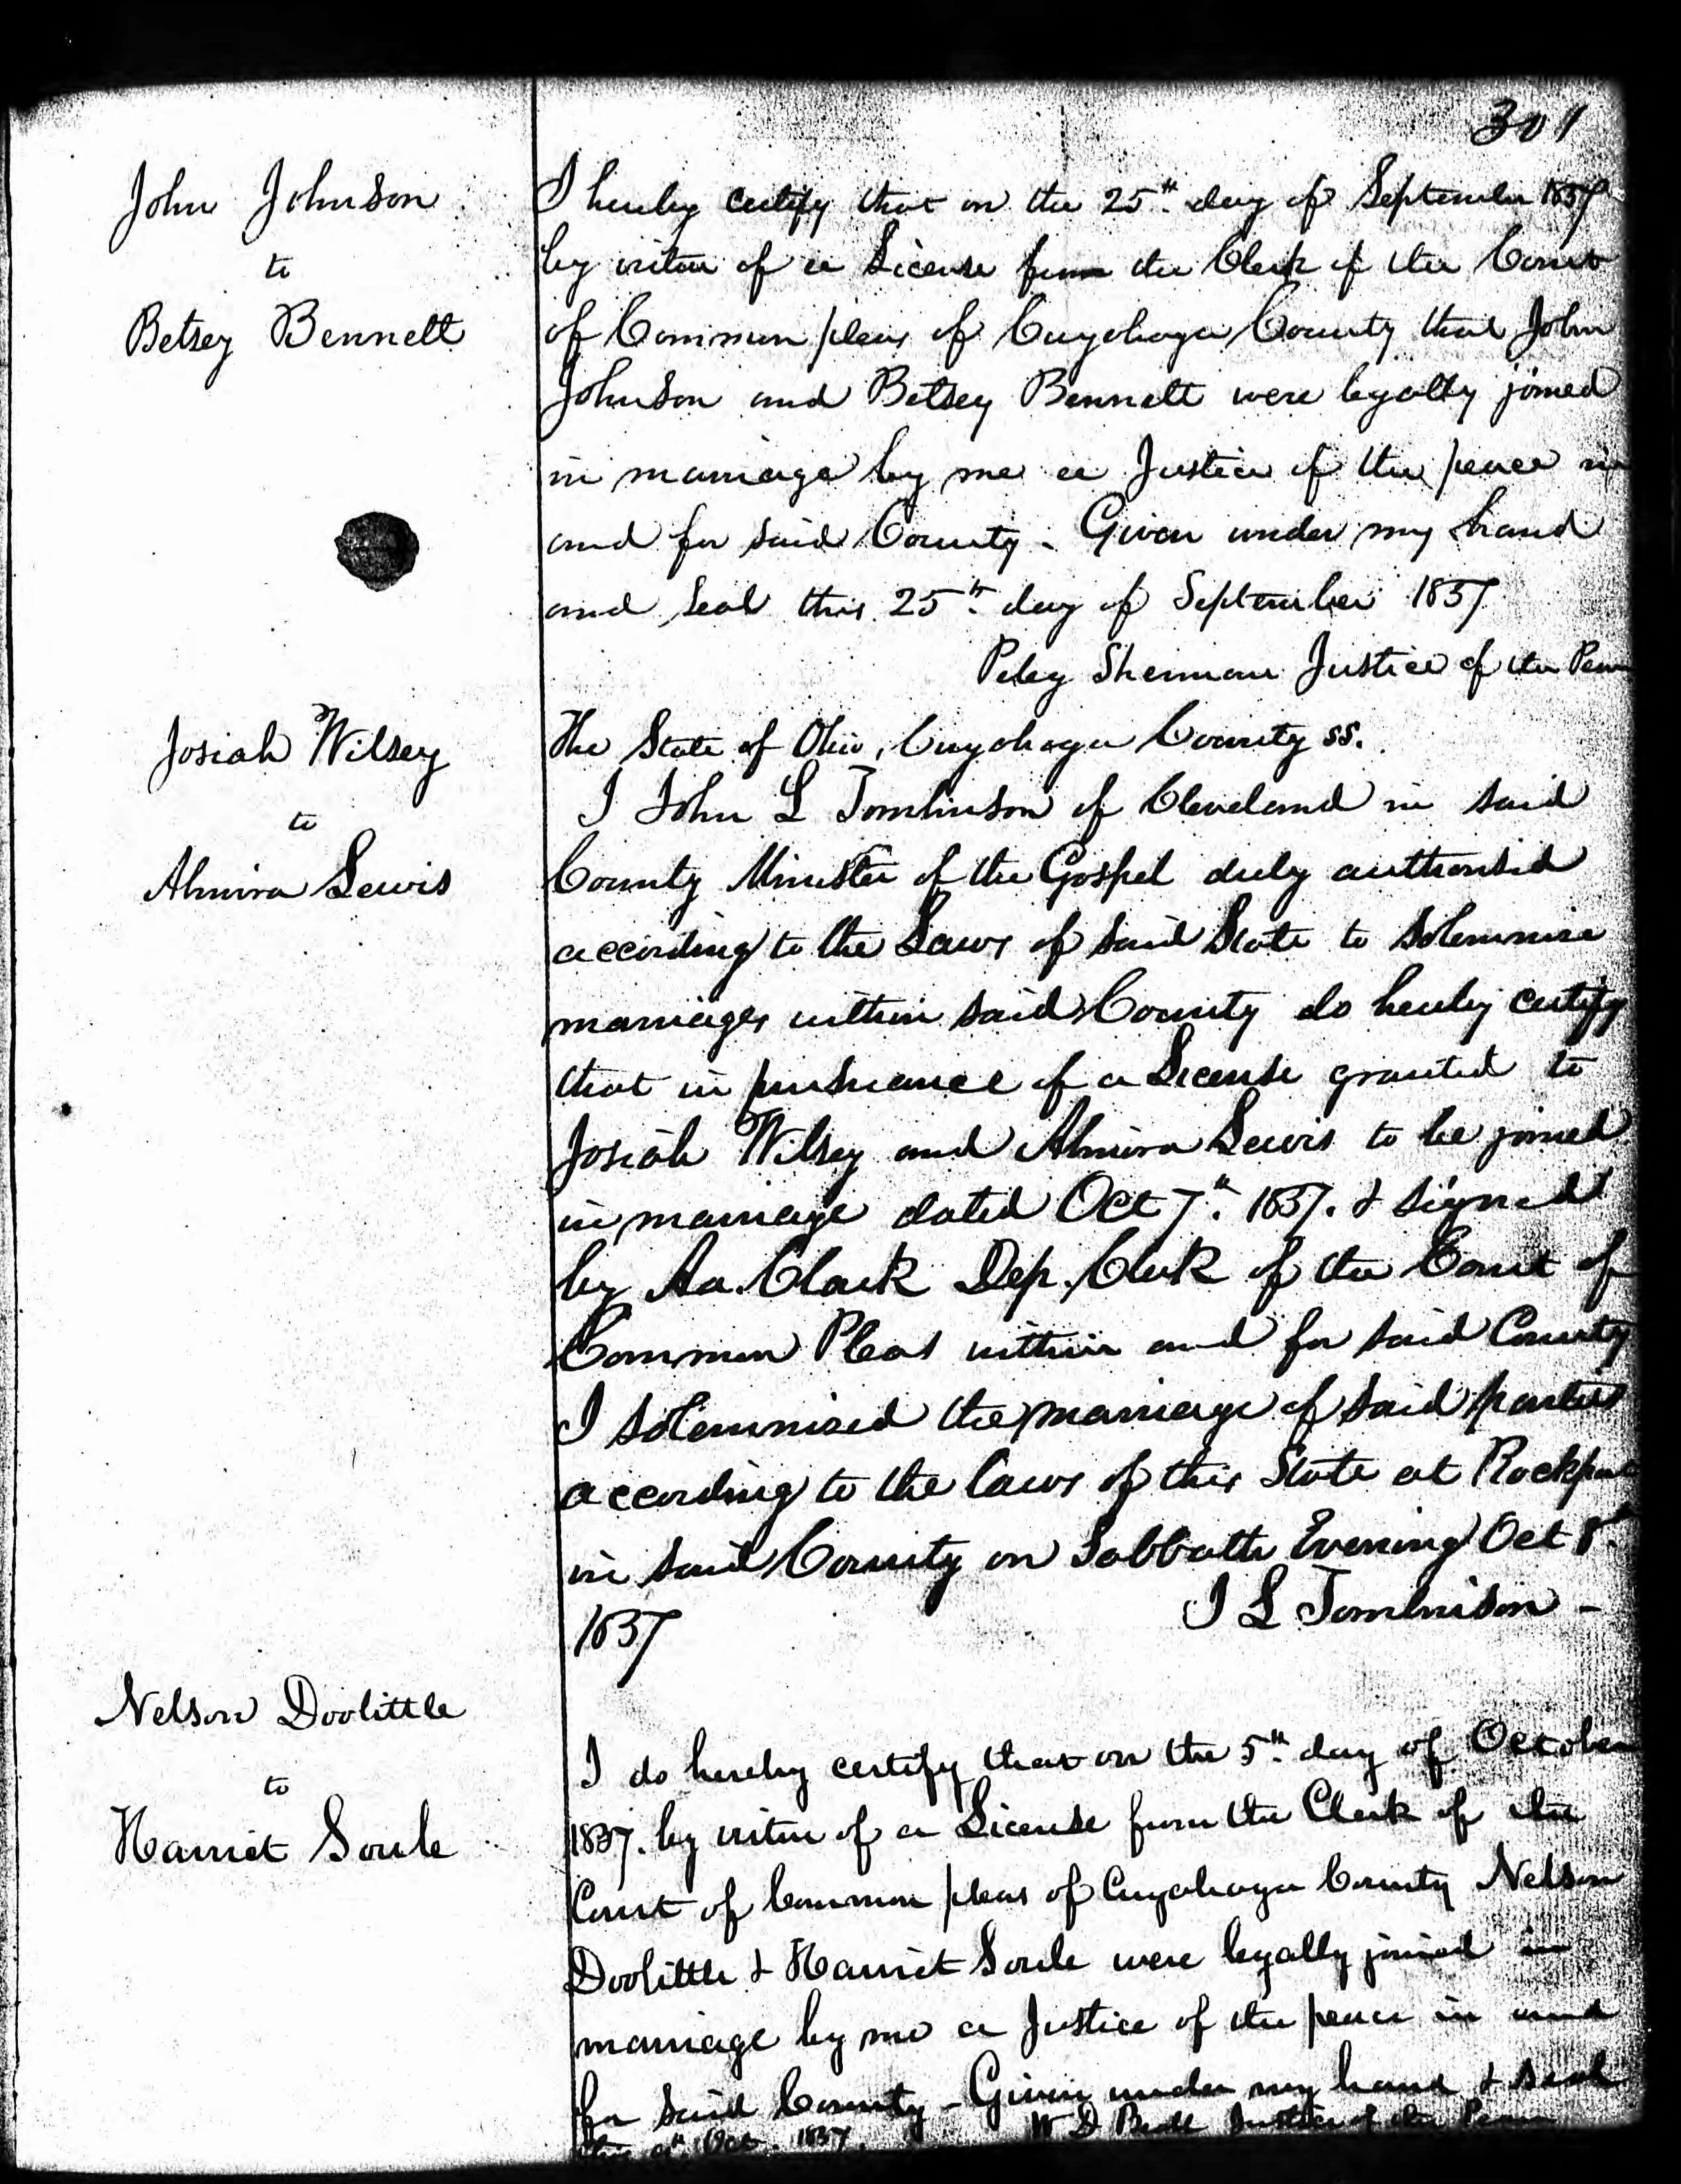 301
John Johnson
to
Betsey Bennett
I hereby certify that on the 25th day of September 1837
by virtue of a License from the Clerk of the Court
of Common pleas of Cuyahoga County that John
Johnson and Betsey Bennett were legally joined
in marriage by me a Justice of the peace in
and for said County - Given under my hand
and seal this 25th day of September 1837
Peleg Sherman Justice of the Peace
Josiah Wilsey
to
Almira Lewis
The State of Ohio, Cuyahoga County ss.
I John L Tomlinson of Cleveland in said
County Minister of the Gospel duly authorisid
according to the Laws of said State to solemnise
marriages within said County do hereby certify
that in pursuance of a License granted to
Josiah Wilsey and Almira Lewis to be joined
in marriage dated Oct 7th 1837. & signed
by Aa. Clark Dep. Clerk of the Court of
Common Pleas within and for said County
I solemnised the marriage of said parties
according to the laws of this State at Rockport
in said County on Sabbath Evening Oct 8th
1837
J L Tomlinson -
Nelson Doolittle
to
Harriet Soule
I do hereby certify that on the 5th day of October
1837. by virtue of a License from the Clerk of the
Court of Common pleas of Cuyahoga County Nelson
Doolittle & Harriet Soule were legally joined in
marriage by me a Justice of the peace in and
for said County - Given under my hand & seal
this Oct. 1837. W D Beall Justice of the Peace